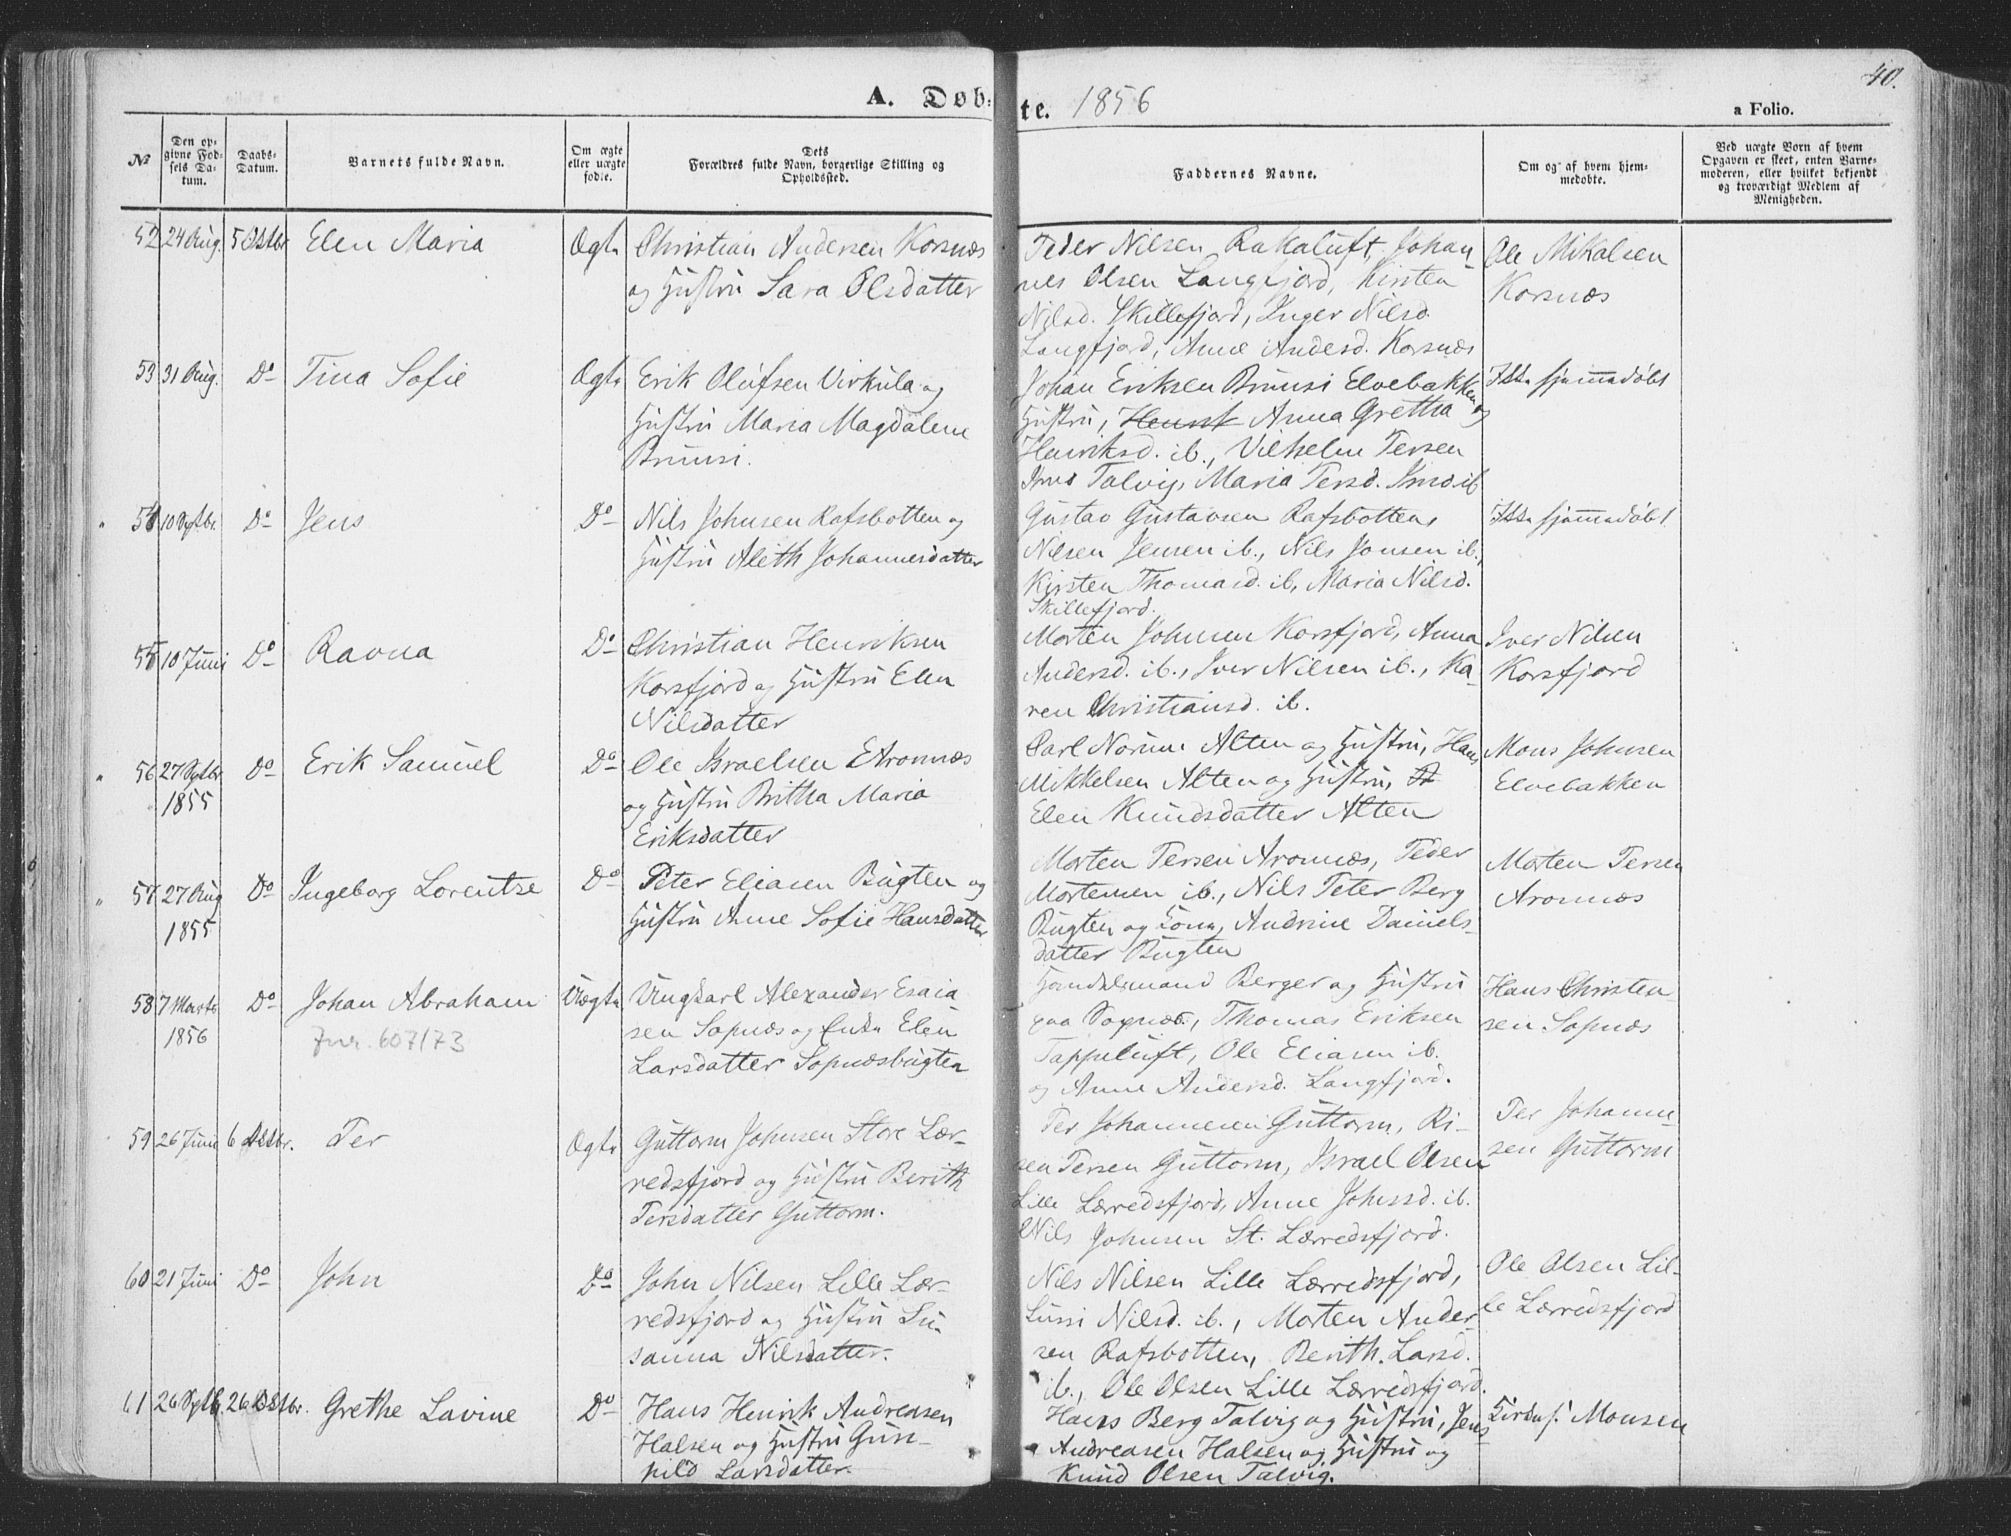 40.
A. Døb-
te. 1856
a Folio.
№
Den op-
givne Fød-
sels Da-
tum.
Daabs-
Datum.
Barnets fulde Navn.
Om ægte
eller uægte
fødte.
Dets
Forældres fulde Navn, borgerlige Stilling og
Opholdssted.
Faddernes Navne.
Om og af hvem hjem-
medøbte.
Ved uægte Børn af hvem
Opgaven er skeet, enten Barne-
moderen, eller hvilket bekjendt
og troværdigt Medlem af
Menigheden.
52 24 Aug. 5 Octbr. Elen Maria Ægte
Christian Andersen Korsnæs
og Hustru Sara Olsdatter
Peder Nilsen Rakaluft, Johan
nes Olsen Langfjord, Kirsten
Nilsd. Skillefjord, Inger Nilsd.
Langfjord, Anne Andersd. Korsnæs
Ole Mikalsen
Korsnæs
53 31 Aug. Do Tina Sofie Ægte
Erik Olufsen Virkula og
Hustru Maria Magdalene
Bruusi.
Johan Eriksen Bruusi Elvebakken og
Hustru, Anna Gretha
Henriksd. ib., Vilhelm Persen
Talvig, Maria Persd. ib
Ikke hjemmedøbt
54 10 Septbr. Do Jens Do
Nils Johnsen Rafsbotten og
Hustru Aleth Johannesdatter
Gustav Gustavsen Rafsbotten,
Nilsen Jensen ib., Nils Jonsen ib.,
Kirsten Thomasd. ib, Maria Nilsd.
Skillefjord.
Ikke hjemmedøbt
55 10 Juni Do Ravna Do
Christian Henriksen
Korsfjord og Hustru Elen
Nilsdatter
Morten Johnsen Korsfjord, Anna
Andersd. ib., Iver Nilsen ib., Ka-
ren Christiansd. ib.
Iver Nilsen
Korsfjord
56 27 Septbr. Do Erik Samuel Do
1855
Ole Israelsen Aronnæs
og Hustru Britha Maria
Eriksdatter
Carl Norum Alten og Hustru, Hans
Mikkelsen Alten og Hustru,
Elen Knudsdatter Alten
Mons Johnsen
Elvebakken
57 27 Aug Do Ingeborg Lorentze Do
1855
Peter Eliasen Bugten og
Hustru Anne Sofie Hansdatter
Morten Persen Aronnæs, Peder
Mortensen ib., Nils Peter Berg
Bugten og Kone, Andrine Daniels-
datter Bugten
Morten Persen
Aronnæs
58 7 Marts Do Johan Abraham Uægte
1856
Jnr. 607/73
Ungkarl Alexander Esaia
sen Sopnæs og Enke Elen
Larsdatter Sopnæsbugten
Handelsmand Berger og Hustru
paa Sopnæs, Thomas Eriksen
Tappeluft, Ole Eliasen ib.
og Anne Andersd. Langfjord.
Hans Christen-
sen Sopnæs
59 26 Juni 6 Octbr. Per Ægte
Guttorm Johnsen Store Lær-
redsfjord og Hustru Berith
Persdatter Guttorm.
Per Johannesen Guttorm, Ri-
sen Persen Guttorm, Israel Olsen
Lille Lærredsfjord, Anne Johnsd. ib.
Nils Johnsen St. Lærredsfjord.
Per Johanne-
sen Guttorm
60 21 Juni Do John Do
John Nilsen Lille Lær-
redsfjord og Hustru Su-
sanna Nilsdatter.
Nils Nilsen Lille Lærredsfjord,
Sussi Nilsd. ib., Morten Ander-
sen Rafsbotten, Berith Larsd.
ib., Ole Olsen Lille Lærredsfjord.
Ole Olsen Lil-
le Lærredsfjord
61 26 Septb. 26 Octbr. Grethe Lavine Do
Hans Henrik Andreasen
Halsen og Hustru Gun-
hild Larsdatter.
Hans Berg Talvig og Hustru, Jens
Andreasen Halsen og Hustru og
Knud Olsen Talvig.
Monsen